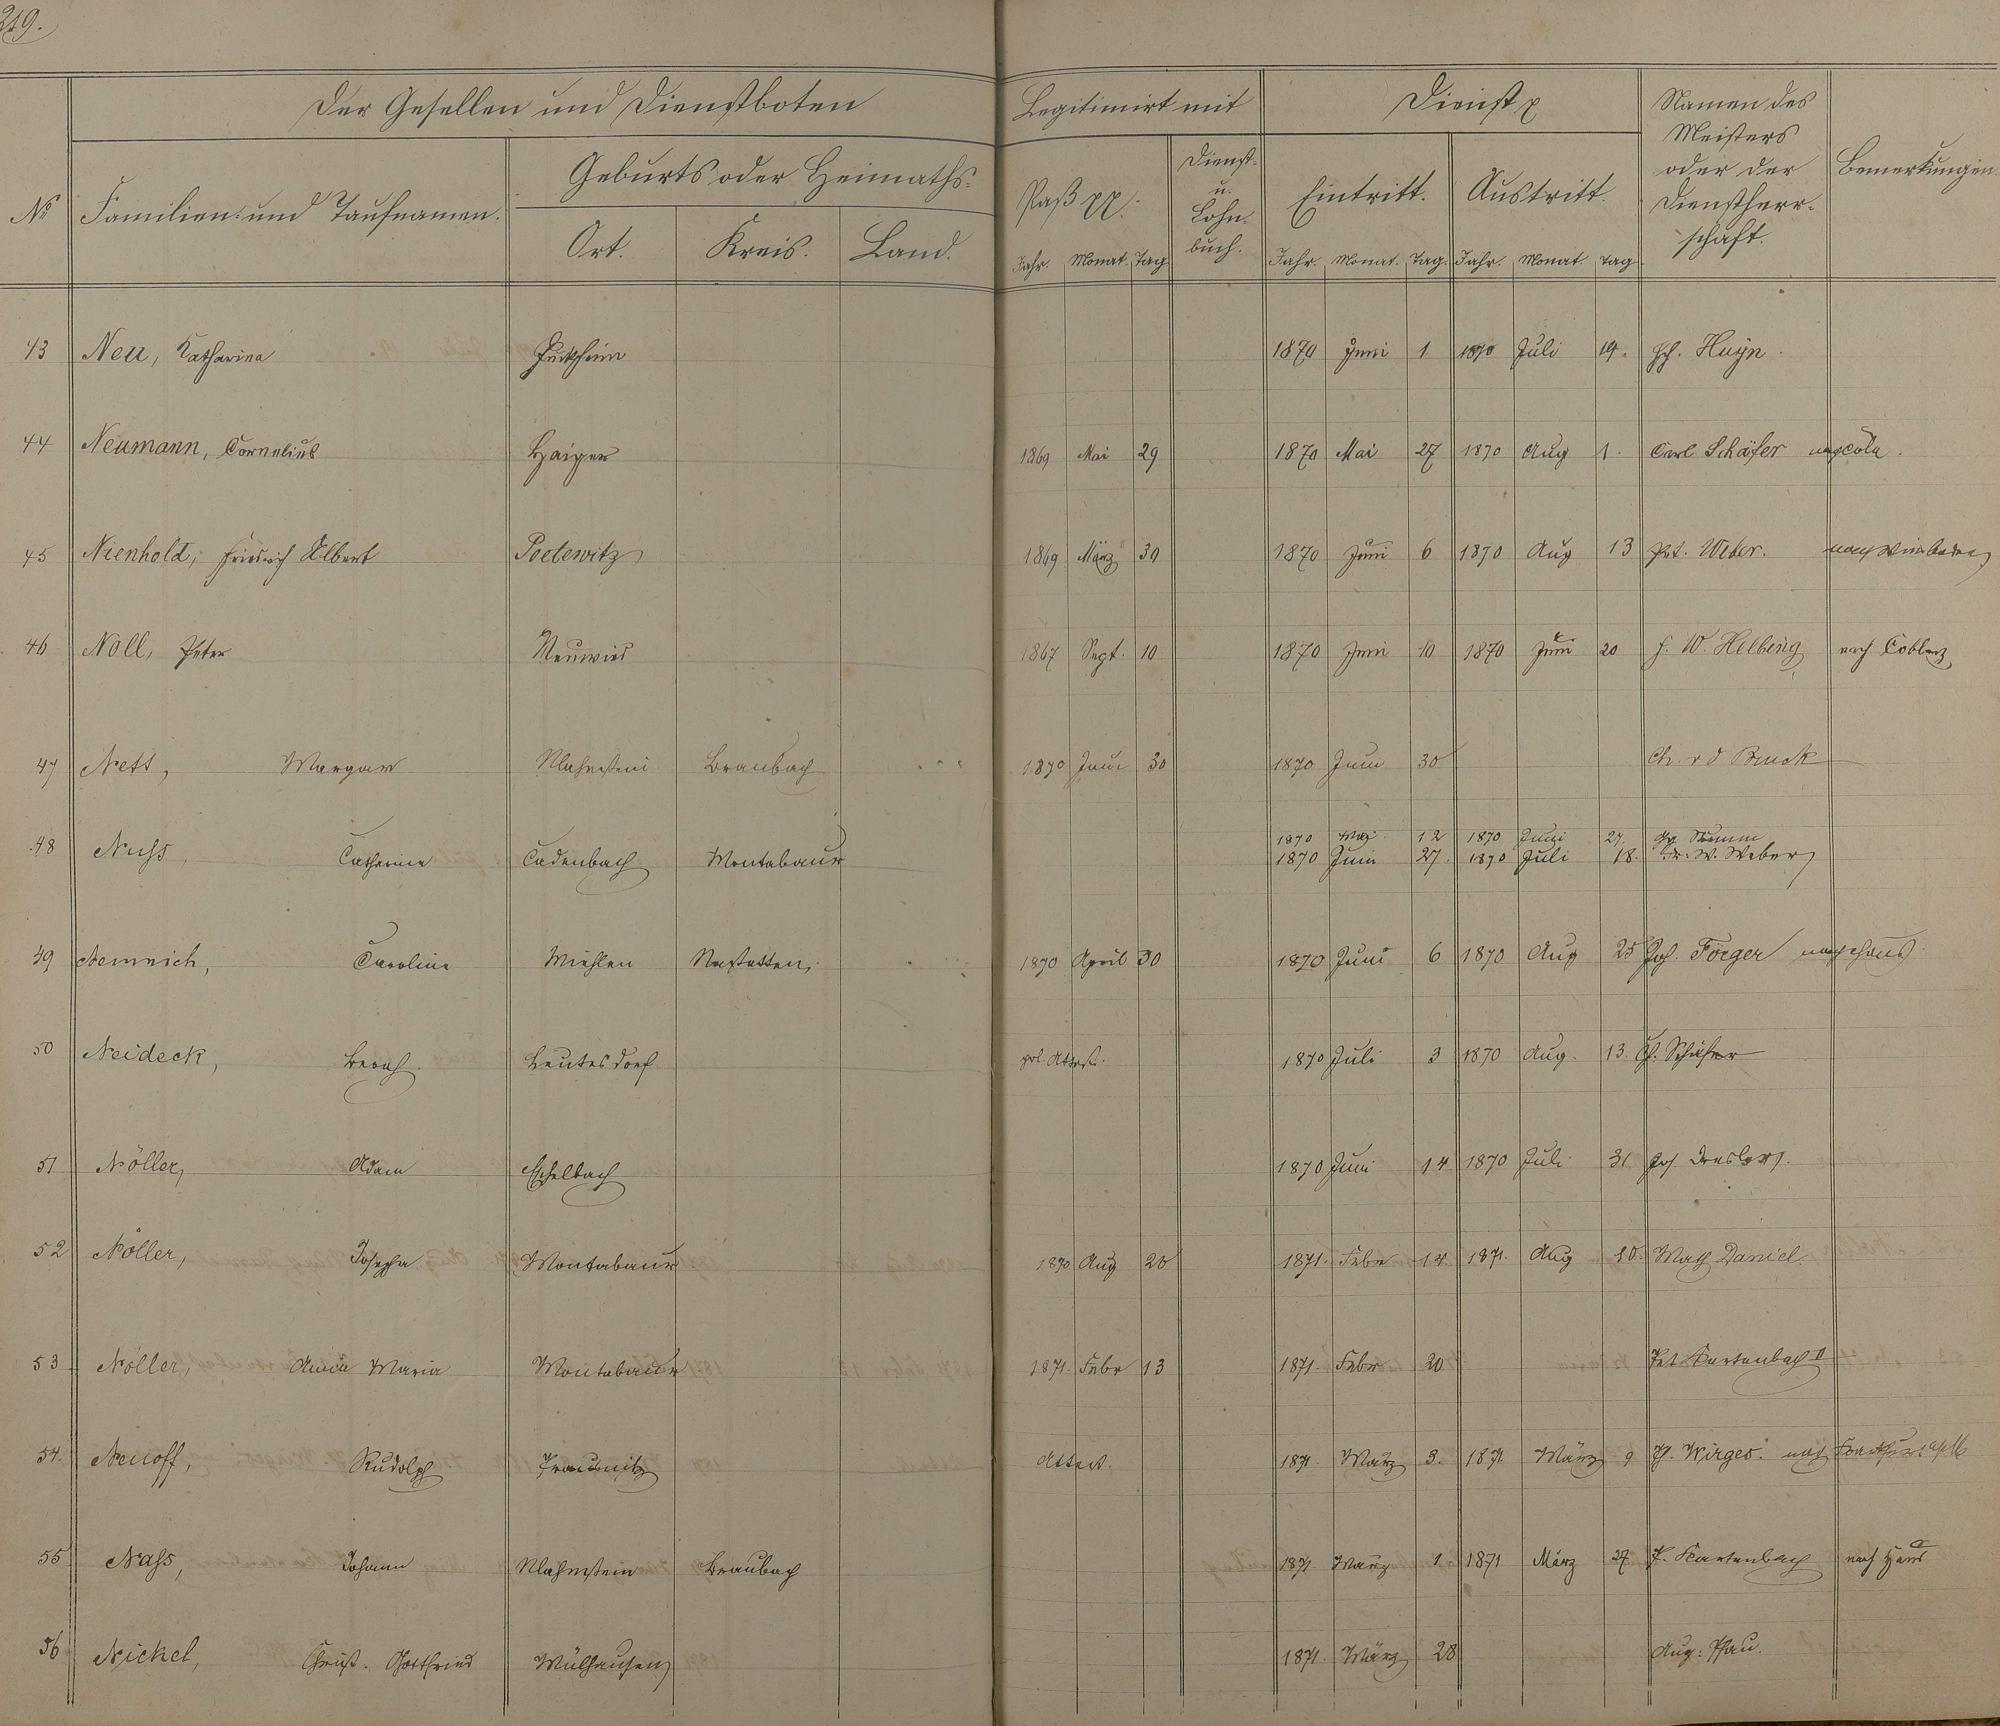 219.
Der Gesellen und Dienstboten
Legitimirt mit
Dienst
Namen des Meisters oder der Dienstherrschaft.
Bemerkungen
No
Familien- und Taufnamen.
Geburts oder Heimaths-
Ort. Kreis. Land.
Paß
Dienst- u. Lohn- buch.
Eintritt. Austritt.
Jahr. Monat. Tag Jahr. Monat. Tag. Jahr. Monat. Tag
43 Neu, Katharina 1870 Juni 1 1870 Juli 19. Huyn
44 Neumann, Cornelius Haiger 1869 Mai 29 1870 Mai 27 1870 Aug 1. Carl Schäfer nach Cöln.
45 Nienhold, Friedrich Albert 1869 März 30 1870 Juni 6 1870 Aug 13 Pet. Weber. nach Wiesbaden
46 Noll, Peter Neuwied 1867 Sept. 10 1870 Juni 10 1870 Juni 20 F. W. Helbing nach Coblenz
47 Nett, Margar NLahnstein Braubach 1870 Juni 30 1870 Juni 30 Ch. v d Bruck
1870 Mai 12 1870 Juni 27. Stumm
48 Nuss, Catharine Cadenbach Montabaur 1870 Juni 27. 1870 Juli 18. W. Weber
49 Nemnich, Caroline Miehlen Nastätten 1870 April 30 1870 Juni 6 1870 Aug 25 Joh. Förger nach Haus
50 Neideck, Leutesdorf Attest. 1870 Juli 3 1870 Aug. 13. Schäfer
51 Nöller, Adam Eschelbach 1870 Juni 14 1870 Juli 31 Joh.
52 Nöller, Josepha Montabaur 1870 Aug 20 1871. Febr 14 1871. Aug 10. Math Daniel.
53 Nöller, Anna Maria Montabaur 1871. Febr 13 1871. Febr 20 Pet Kartenbach II
54. Neuoff, Rudolph Attest. 1871. März 3. 1871 März 9 Wirges. nach
55 Nass, Johann NLahnstein Braubach 1871. März 1 1871 März 27. P. Kartenbach nach Haus
56 Nickel, Christ. Gottfried Mülhausen 1871. März 28 Aug: Pfau.